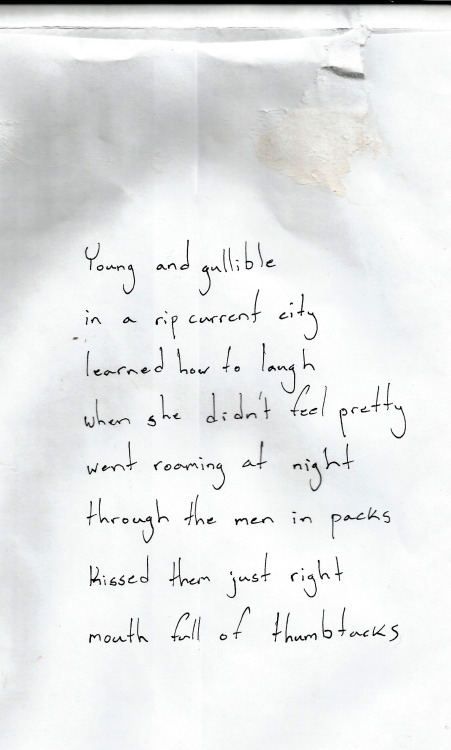 Young and gullible
in a rip current city
learned how to laugh
when she didn't feel pretty
went roaming at night
through the men in packs
kissed them just right
mouth full of thumbtacks